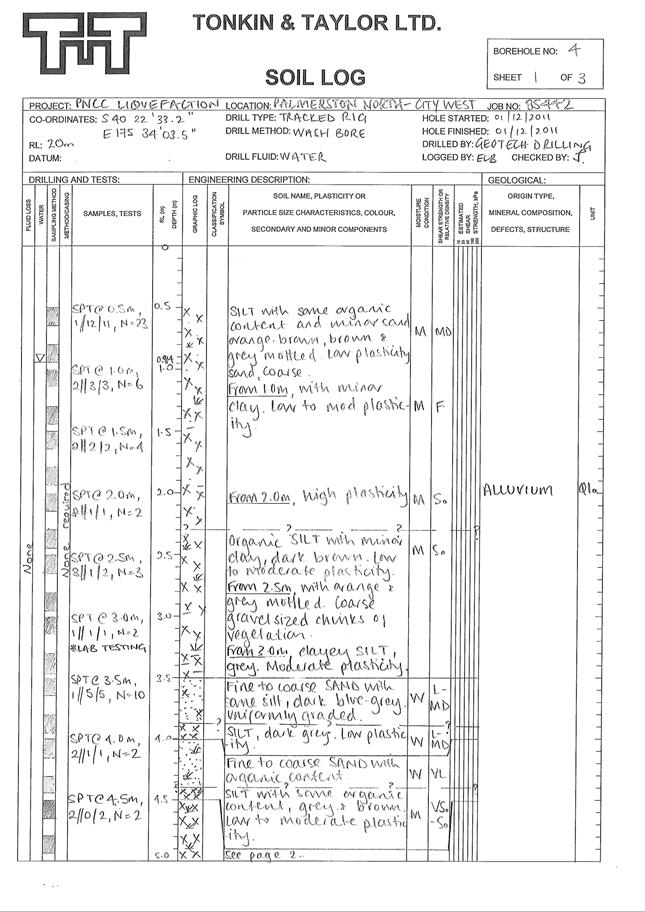 TONKIN & TAYLOR LTD.
SOIL LOG
BOREHOLE NO: 4
SHEET 1 OF 3
PROJECT: PNCC LIQUEFACTION LOCATION: PALMERSTON NORTH- CITY WEST JOB NO: 85442
CO-ORDINATES: S 40 22 '33.2" DRILL TYPE: TRACKED RIG HOLE STARTED: 01/12/2011
E 175 34 '03.5" DRILL METHOD: WASH BORE HOLE FINISHED: 01/12/2011
RL: 20m DRILLED BY: GEOTECH DRILLING
DATUM: DRILL FLUID: WATER LOGGED BY: ELB CHECKED BY:
DRILLING AND TESTS: ENGINEERING DESCRIPTION: GEOLOGICAL:
FLUID LOSS
WATER
SAMPLING METHOD
METHOD/CASING
SAMPLES, TESTS
RL (m)
DEPTH (m)
GRAPHIC LOG
CLASSIFICATION SYMBOL
SOIL NAME, PLASTICITY OR
PARTICLE SIZE CHARACTERISTICS, COLOUR,
SECONDARY AND MINOR COMPONENTS
MOISTURE CONDITION
SHEAR STRENGTH OR RELATIVE DENSITY
ESTIMATED SHEAR STRENGTH, kPa
ORIGIN TYPE,
MINERAL COMPOSITION,
DEFECTS, STRUCTURE
UNIT
0
SPT@ 0.5m,
1/12/11, N=23
0.5
SILT with some organic
content and minor sand
orange-brown, brown &
grey mottled. Low plasticity
sand, coarse.
M MD
SPT@ 1.0m,
2//3/3, N=6
1.0
From 1.0m, with minor
clay. Low to mod plastic-
ity.
M F
SPT@ 1.5m,
2//2/2, N=4
1.5
SPT@ 2.0m,
2//1/1, N=2
2.0
From 2.0m, high plasticity
M So
ALLUVIUM
Q1a
None
None required
? ? ?
Organic SILT with minor
clay, dark brown. Low
to moderate plasticity.
M So
SPT@ 2.5m,
3//1/2, N=3
2.5
From 2.5m, with orange &
grey mottled. Coarse
gravel sized chunks of
vegetation.
SPT@ 3.0m,
1//1/1, N=2
*LAB TESTING
3.0
From 3.0m, clayey SILT,
grey. Moderate plasticity.
SPT@ 3.5m,
1//5/5, N=10
3.5
Fine to coarse SAND with
some silt, dark blue-grey.
Uniformly graded.
W L-MD
SPT@ 4.0m,
2//1/1, N=2
4.0
SILT, dark grey. Low plastic
-ity.
W L-MD
Fine to coarse SAND with
organic content.
W VL
SPT@ 4.5m,
2//0/2, N=2
4.5
SILT with some organic
content, grey & brown.
Low to moderate plastic
-ity.
M VSo-So
5.0
See page 2..